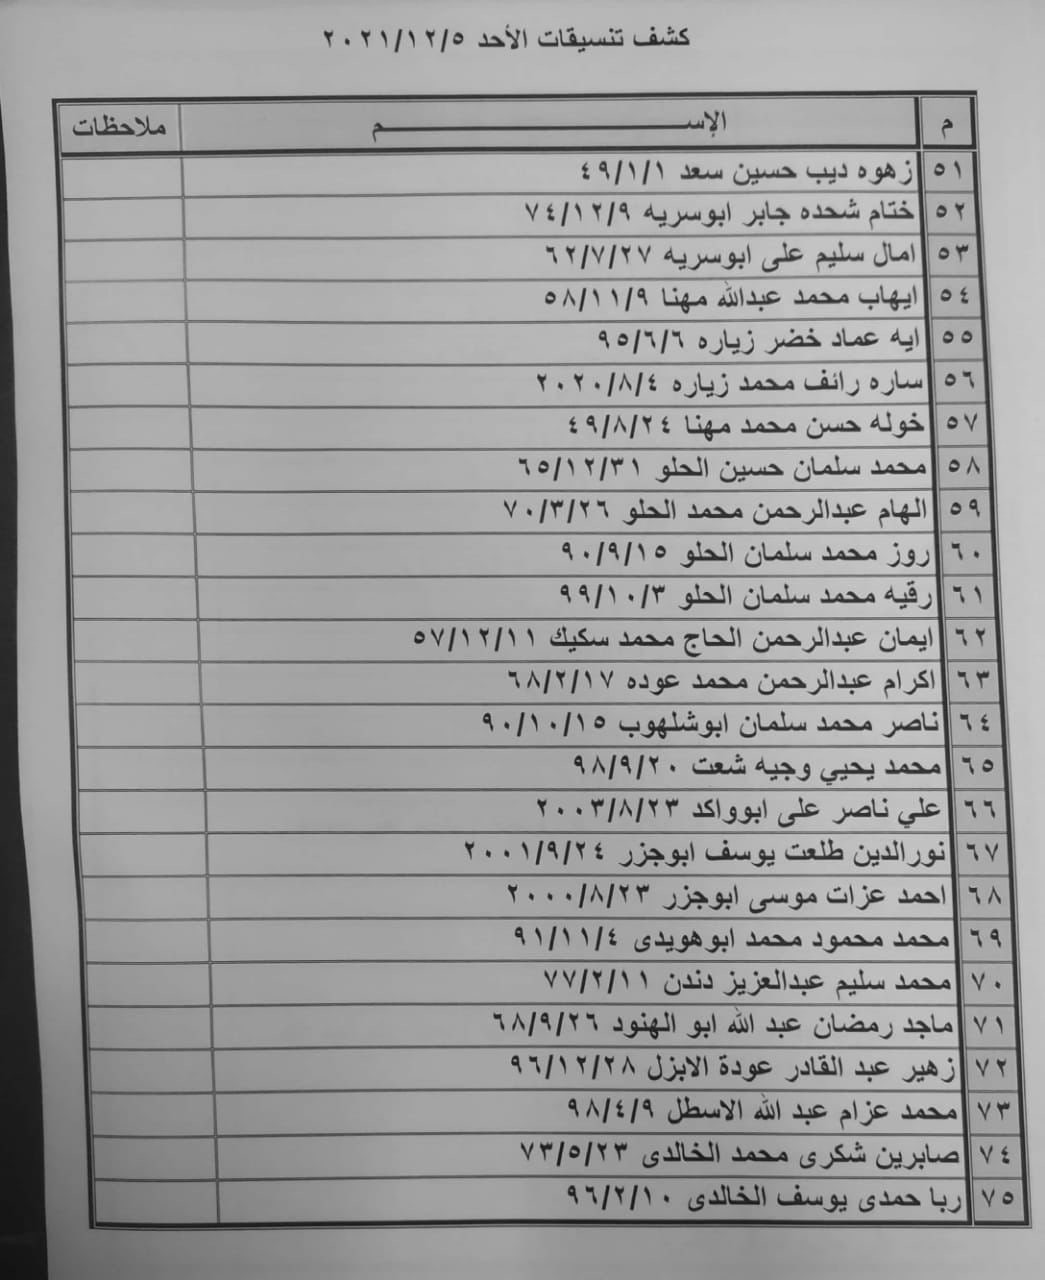 كشف تنسيقات الأحد ٢٠٢١/١٢/٥
م الإســــــــم ملاحظات
٥١ زهوه ديب حسين سعد ٤٩/١/١
٥٢ ختام شحده جابر ابوسريه ٧٤/١٢/٩
٥٣ امال سليم على ابوسريه ٦٢/٧/٢٧
٥٤ ايهاب محمد عبدالله مهنا ٥٨/١١/٩
٥٥ ايه عماد خضر زياره ٩٥/٦/٦
٥٦ ساره رائف محمد زياره ٢٠٢٠/٨/٤
٥٧ خوله حسن محمد مهنا ٤٩/٨/٢٤
٥٨ محمد سلمان حسين الحلو ٦٥/١٢/٣١
٥٩ الهام عبدالرحمن محمد الحلو ٧٠/٣/٢٦
٦٠ روز محمد سلمان الحلو ٩٠/٩/١٥
٦١ رقيه محمد سلمان الحلو ٩٩/١٠/٣
٦٢ ايمان عبدالرحمن الحاج محمد سكيك ٥٧/١٢/١١
٦٣ اكرام عبدالرحمن محمد عوده ٦٨/٢/١٧
٦٤ ناصر محمد سلمان ابوشلهوب ٩٠/١٠/١٥
٦٥ محمد يحيي وجيه شعت ٩٨/٩/٢٠
٦٦ علي ناصر على ابوواكد ٢٠٠٣/٨/٢٣
٦٧ نورالدين طلعت يوسف ابوجزر ٢٠٠١/٩/٢٤
٦٨ احمد عزات موسى ابوجزر ٢٠٠٠/٨/٢٣
٦٩ محمد محمود محمد ابوهويدى ٩١/١١/٤
٧٠ محمد سليم عبدالعزيز دندن ٧٧/٢/١١
٧١ ماجد رمضان عبد الله ابو الهنود ٦٨/٩/٢٦
٧٢ زهير عبد القادر عودة الابزل ٩٦/١٢/٢٨
٧٣ محمد عزام عبد الله الاسطل ٩٨/٤/٩
٧٤ صابرين شكرى محمد الخالدى ٧٣/٥/٢٣
٧٥ ربا حمدى يوسف الخالدى ٩٦/٢/١٠